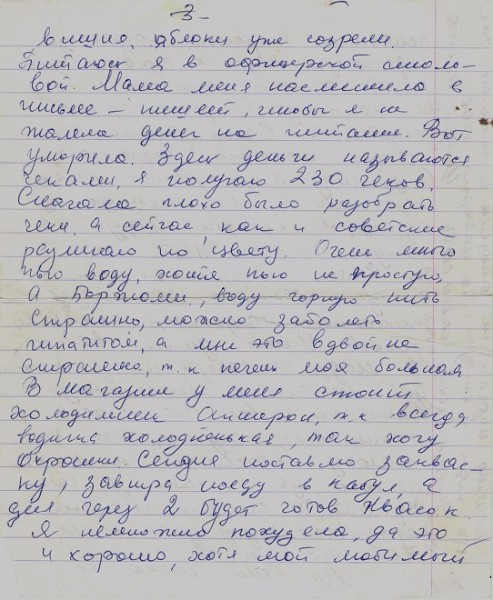 - 3 -
вишня, яблоки уже созрели.
Питаюсь я в офицерской столо-
вой. Мама меня насмешила в
письме – пишет, чтобы я не
жалела денег на питание. Вот
уморила. Здесь деньги называются
чеками, я получаю 230 чеков.
Сначала плохо было разобрать
чеки, а сейчас как и советские
различаю по цвету. Очень много
пью воду, хотя пью не простую,
а Боржоми, воду горную пить
страшно, можно заболеть
гипатитом, а мне это вдвойне
страшно, т.к печень моя больная
В магазине у меня стоит
холодильник Апшерон, т.к всегда
водичка холодненькая, так хочу
окрошки. Сегодня поставлю заквас-
ку, завтра поеду в Кабул, а
дня через 2 будет готов квасок.
Я немножко похудела, да это
и хорошо, хотя мой любимый